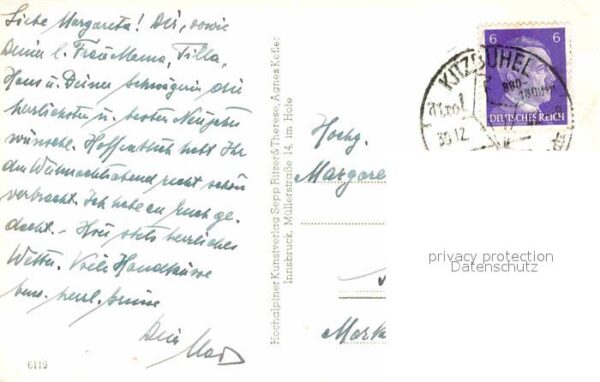 Liebe Margareta! Dir, sowie
Deiner l. Frau Mama, Tilla,
Hans u. Deiner Schwägerin die
herzlichsten u. besten Neujahrs
wünsche. Hoffentlich habt Ihr
den Weihnachtsabend recht schön
verbracht. Ich habe an Euch ge-
dacht. - Hier stets herrliches
Wetter. Viele Handküsse
bzw. herzl. Grüsse
Dein
6119
Hochalpiner Kunstverlag Sepp Ritzer & Therese, Agnes Kofler
Innsbruck, Müllerstraße 14, im Hofe
6 6
KITZBÜHEL
Tirol
30.12.
DEUTSCHES REICH
Hochg.
Margare
Mark
privacy protection
Datenschutz